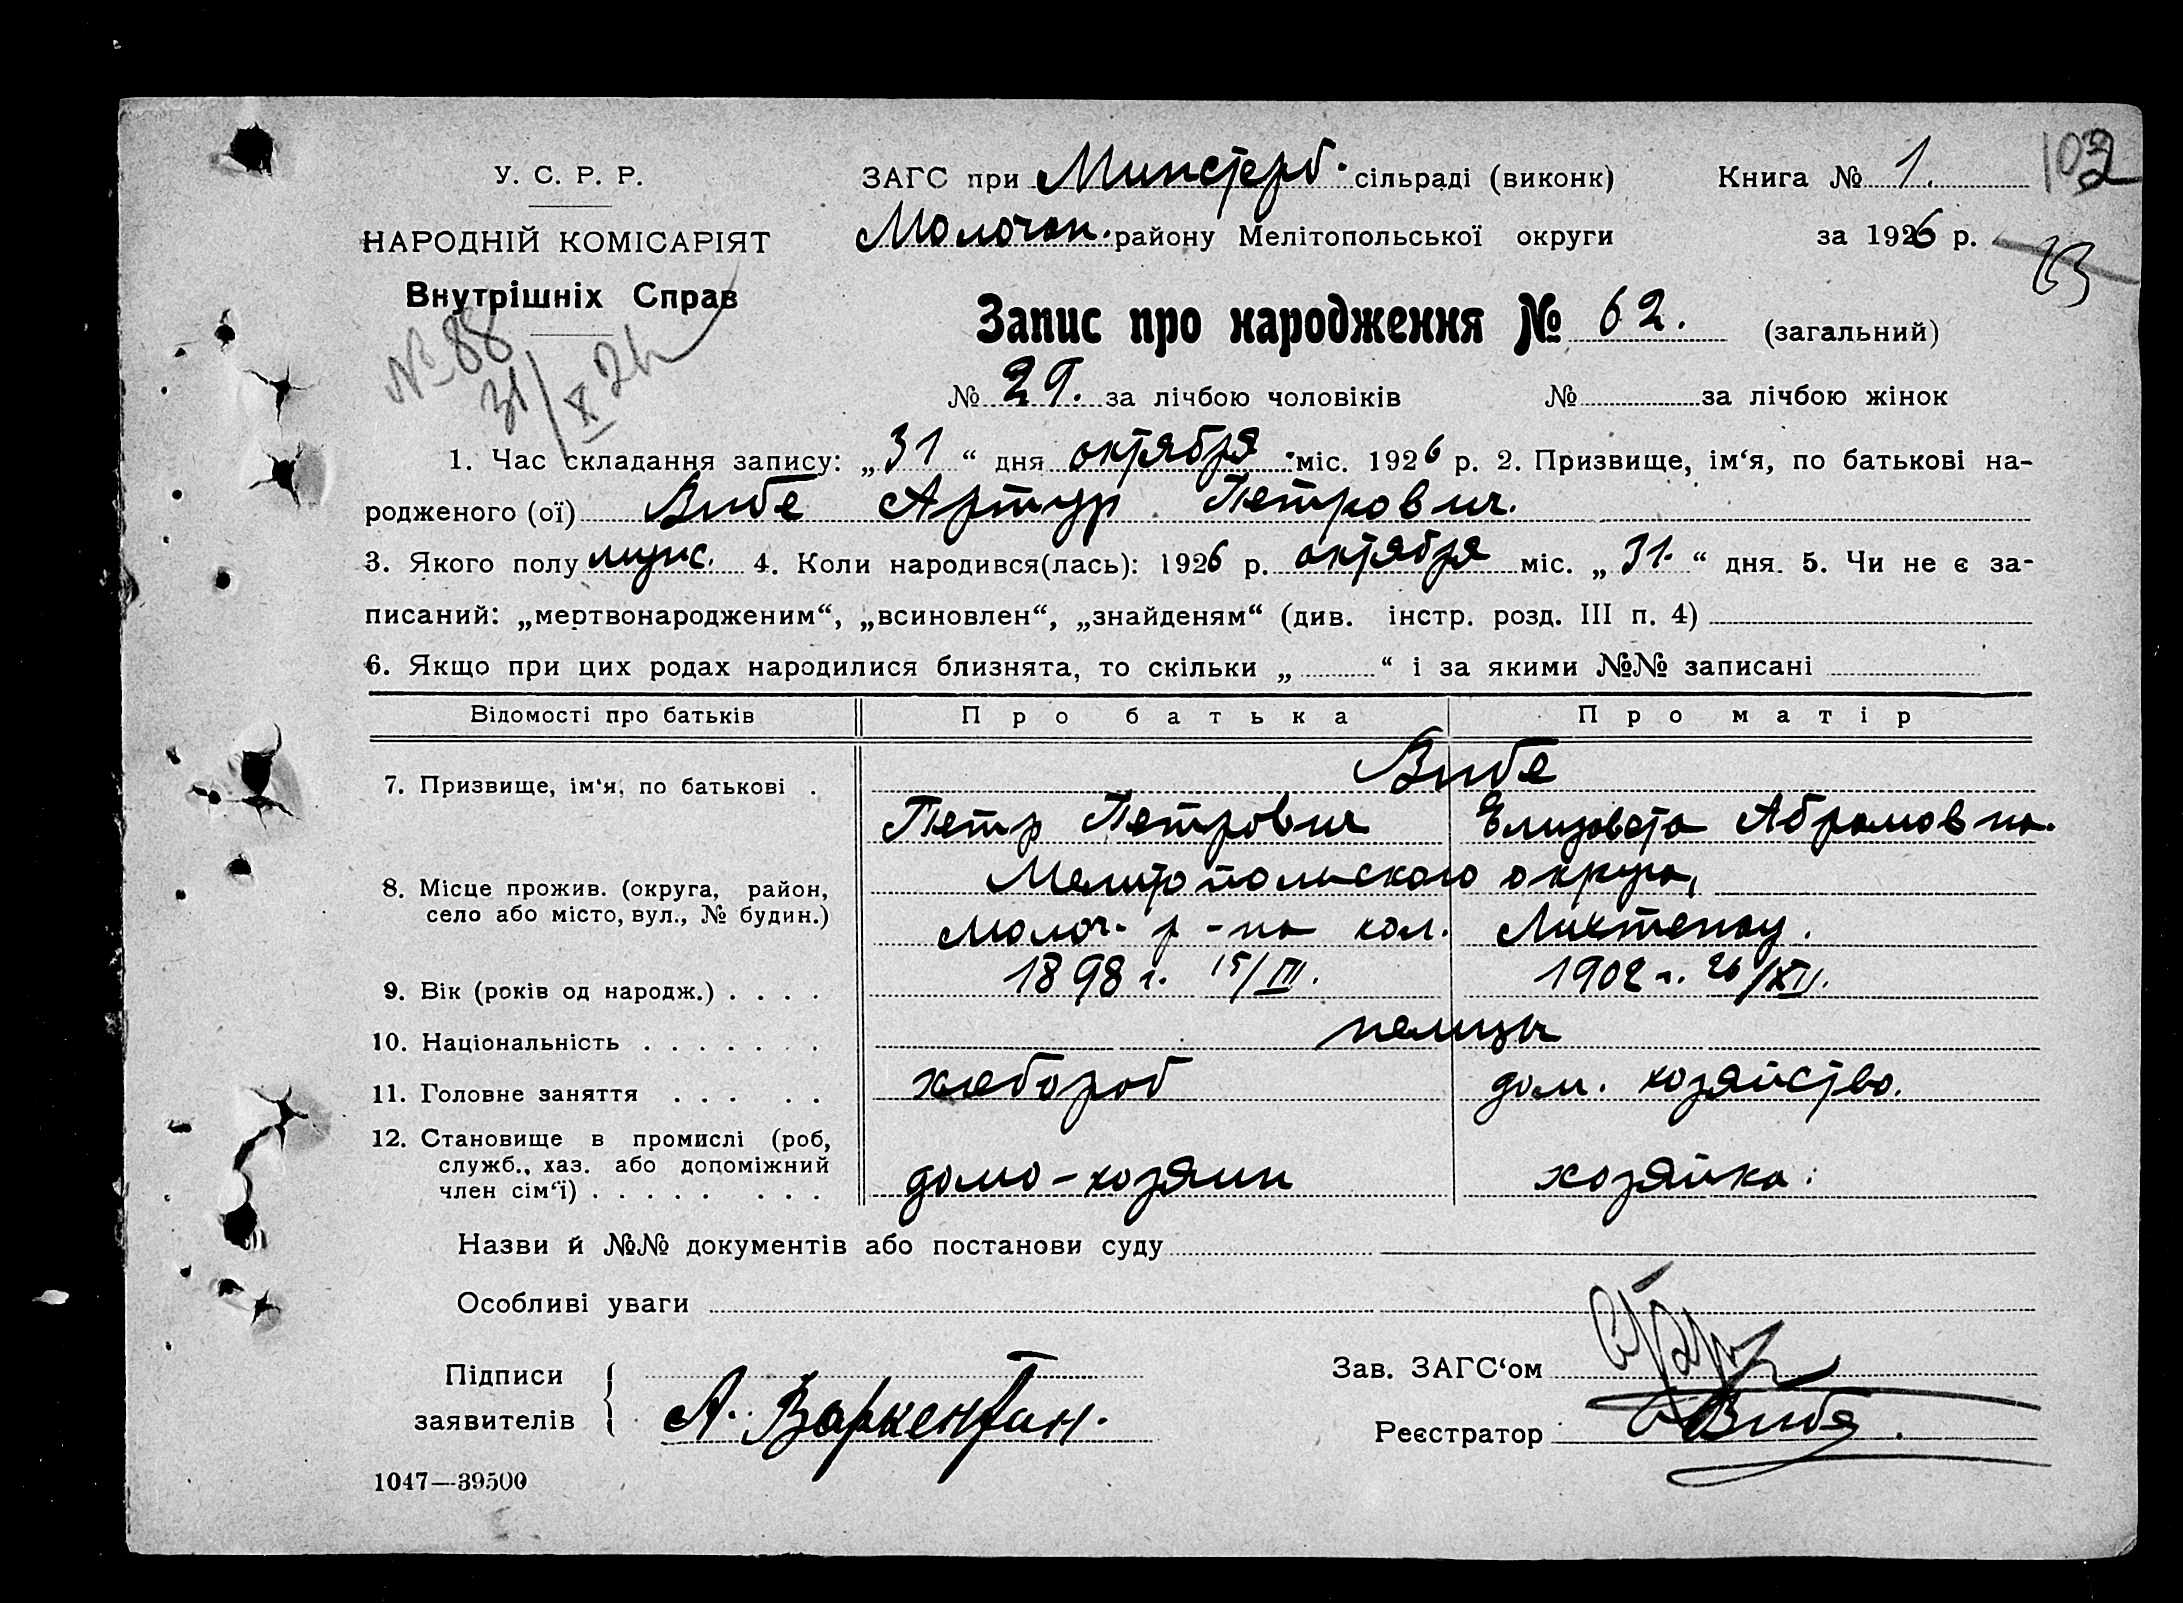 102
У. С. Р. Р.
ЗАГС при Минстерб. сільраді (виконк)
Книга № 1.
НАРОДНІЙ КОМІСАРІЯТ
Молочан. району Мелітопольської округи
за 1926 р.
Внутрішніх Справ
Запис про народження № 62. (загальний)
№ 88
31/X 26
№ 29. за лічбою чоловіків № за лічбою жінок
1. Час складання запису: „31“ дня октября міс. 1926 р. 2. Призвище, ім‘я, по батькові на-
родженого (ої) Вибе Артур Петрович.
3. Якого полу мужс. 4. Коли народився(лась): 1926 р. октября міс. „31.“ дня. 5. Чи не є за-
писаний: „мертвонародженим“, „всиновлен“, „знайденям“ (див. інстр. розд. III п. 4)
6. Якщо при цих родах народилися близнята, то скільки „ “ і за якими №№ записані
Відомості про батьків Про батька Про матір
7. Призвище, ім‘я, по батькові . Вибе
Петр Петрович Елизовета Абрамовна.
8. Місце прожив. (округа, район, Мелитопольского округа,
село або місто, вул., № будин.) Молоч. р-на кол. Лихтенау.
9. Вік (років од народж.) . . . . 1898 г. 15/III. 1902 г. 26/XII.
10. Національність . . . . . . . немцы
11. Головне заняття . . . . . хлебороб дом. хозяйство.
12. Становище в промислі (роб,
служб., хаз. або допоміжний
член сім‘ї) . . . . . . . . домо-хозяин хозяйка.
Назви й №№ документів або постанови суду
Особливі уваги
Підписи
заявителів
А. Варкентин.
Зав. ЗАГС‘ом
Реєстратор Вибе.
1047—39500